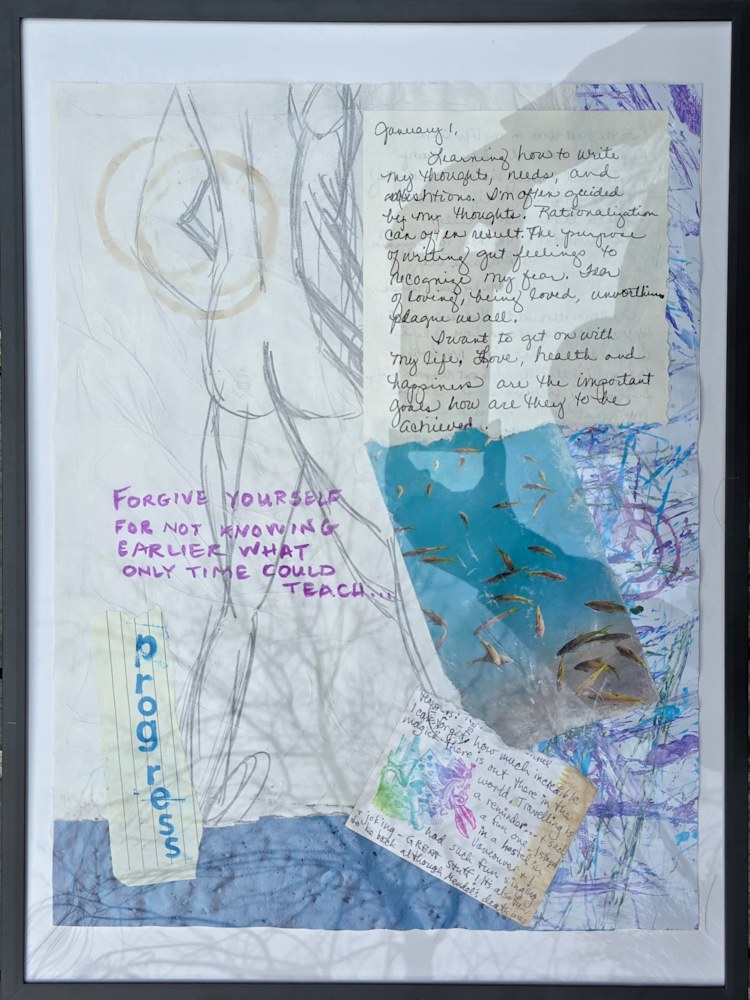 January 1,
Learning how to write
my thoughts, needs, and
I'm often guided
by my thoughts. Rationalization
can often result. The purpose
of writing gut feelings to
recognize my fear. Fear
of loving, being loved, unworthiness
plague us all.
I want to get on with
my life. Love, health and
happiness are the important
goals how are they to be
achieved.
FORGIVE YOURSELF
FOR NOT KNOWING
EARLIER WHAT
ONLY TIME COULD
TEACH...
progress
I can forget how much incredible
magick there is out there in the
world. Travelling is
a reminder. I feel
a fun one. visited
in a hostel in
Vancouver &
had such fun singing
joking - GREAT stuff! It's also
to be back although Mendel's death